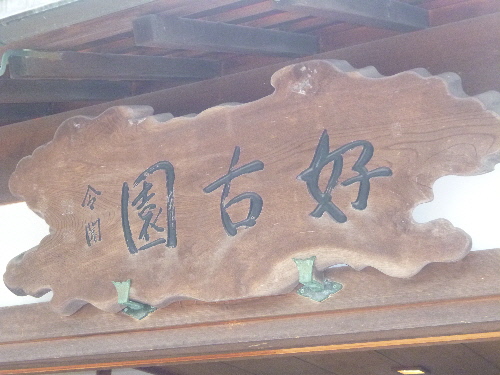 好古園